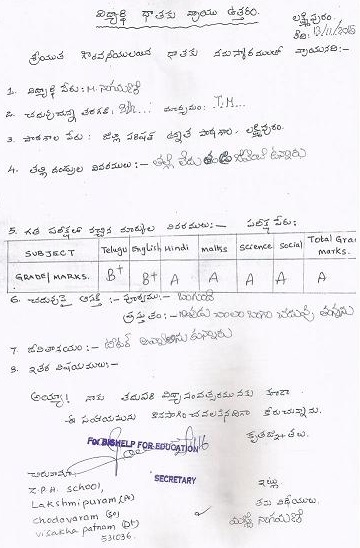 విద్యార్థి దాతకు వ్రాయు ఉత్తరం.
లక్ష్మీపురం.
తేది: 13/11/2015
శ్రీయుత గౌరవనీయులయిన దాతకు నమస్కారములతో వ్రాయునది:-
1. విద్యార్థి పేరు: M. నాగమణి
2. చదువుచున్న తరగతి: 9th... మాధ్యమం: T.M...
3. పాఠశాల పేరు: జిల్లా పరిషత్ ఉన్నత పాఠశాల, లక్ష్మీపురం.
4. తల్లి దండ్రుల వివరములు:- తల్లి లేదు తండ్రి ఉన్నారు
5. గత పరీక్షలో వచ్చిన మార్కుల వివరములు:- పరీక్ష పేరు:
SUBJECT Telugu English Hindi maths Science Social Total Grad marks.
GRADE/MARKS. B+ B+ A A A A A
6. చదువుపై ఆసక్తి :- పూర్వము:- బాగుంది
ప్రస్తుతం:- ఇప్పుడు చాలా బాగా చదువు
7. జీవితాశయం:- టీచర్ అవ్వాలను కున్నారు
8. ఇతర విషయములు:-
అయ్యా! నాకు తదుపరి విద్యా సంవత్సరమునకు కూడా
ఈ సహాయమును కొనసాగించవలసినదిగా కోరుచున్నాను.
కృతజ్ఞతలు.
For BIGHELP FOR EDUCATION
SECRETARY
చిరునామా
Z.P.H. SCHOOL,
Lakshmipuram (PO)
Chodavaram (SO)
Visakha patnam (Dt)
531036.
ఇట్లు
తమ విధేయులు
నాగమణి